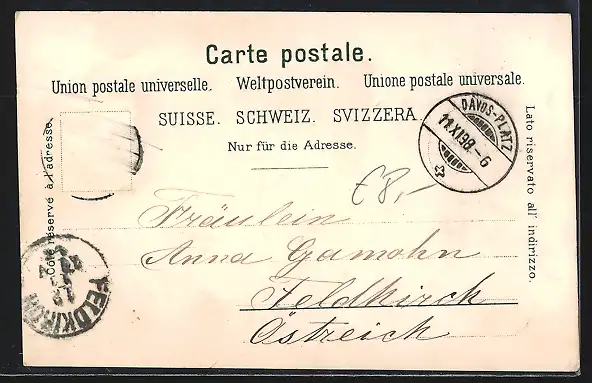 Carte postale.
Union postale universelle. Weltpostverein. Unione postale universale.
SUISSE. SCHWEIZ. SVIZZERA.
Nur für die Adresse.
Côté réservé à l'adresse.
Lato riservato all' indirizzo.
DAVOS-PLATZ
11.XI.98.-6
€8,-
Fräulein
Anna Gamohn
Feldkirch
Östreich
FELDKIRCH